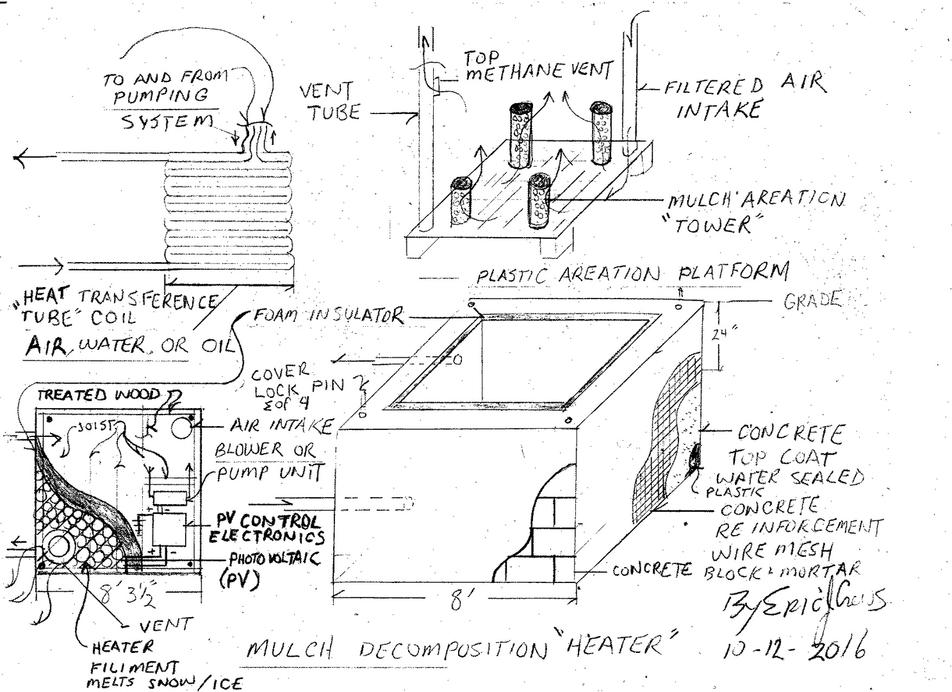 TO AND FROM
PUMPING
SYSTEM
"HEAT TRANSFERENCE
TUBE" COIL
AIR, WATER, OR OIL
VENT
TUBE
TOP
METHANE VENT
FILTERED AIR
INTAKE
MULCH AREATION
"TOWER"
PLASTIC AREATION PLATFORM
GRADE
24"
FOAM INSULATOR
COVER
LOCK PIN
1 of 4
TREATED WOOD
JOIST
AIR INTAKE
BLOWER OR
PUMP UNIT
PV CONTROL
ELECTRONICS
PHOTOVOLTAIC
(PV)
8' 3½
VENT
HEATER
FILIMENT
MELTS SNOW/ICE
8'
CONCRETE
TOP COAT
WATER SEALED
PLASTIC
CONCRETE
REINFORCEMENT
WIRE MESH
CONCRETE BLOCK & MORTAR
MULCH DECOMPOSITION "HEATER"
By ERIC
10-12-2016